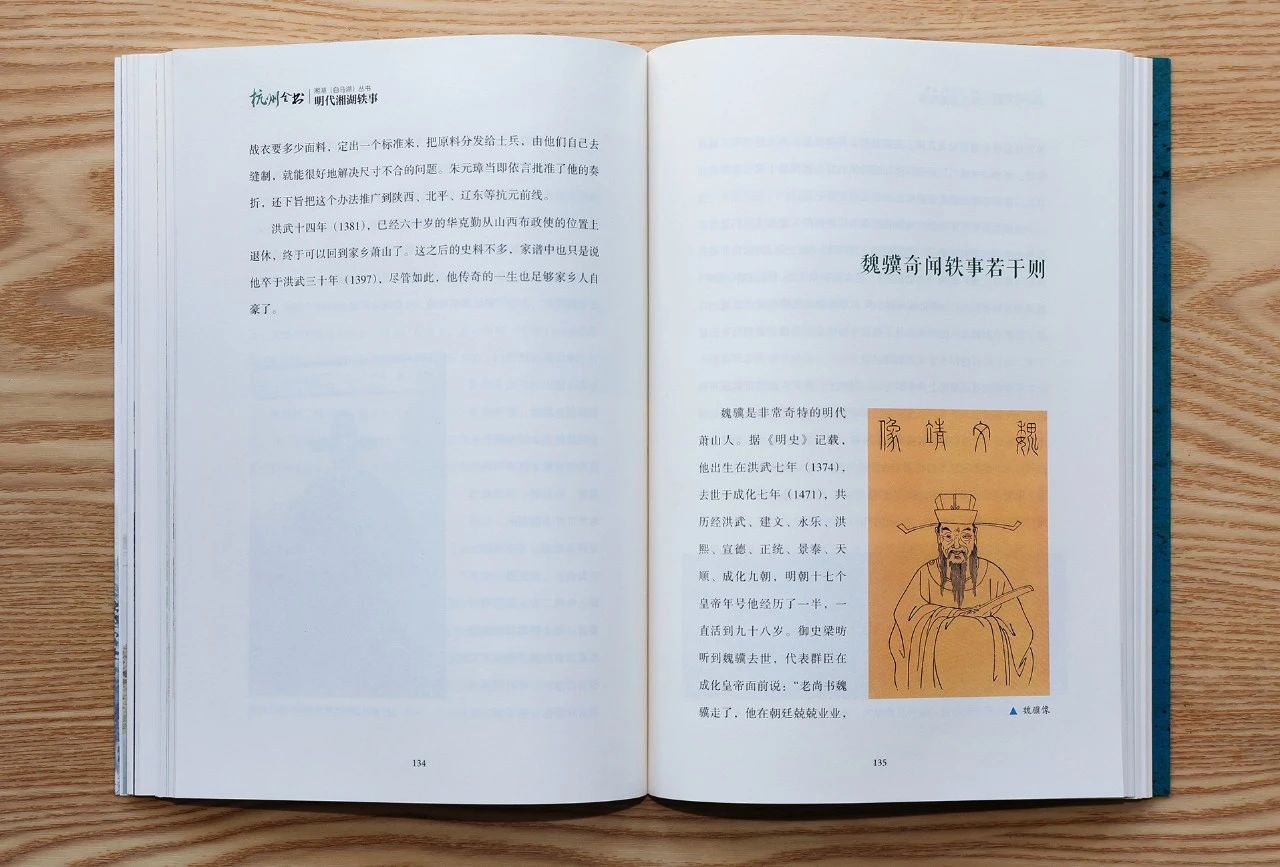 杭州全书
湘湖（白马湖）丛书
明代湘湖轶事
战衣要多少面料，定出一个标准来，把原料分发给士兵，由他们自己去
缝制，就能很好地解决尺寸不合的问题。朱元璋当即依言批准了他的奏
折，还下旨把这个办法推广到陕西、北平、辽东等抗元前线。
洪武十四年（1381），已经六十岁的华克勤从山西布政使的位置上
退休，终于可以回到家乡萧山了。这之后的史料不多，家谱中也只是说
他卒于洪武三十年（1397），尽管如此，他传奇的一生也足够家乡人自
豪了。
134
魏骥奇闻轶事若干则
魏骥是非常奇特的明代
萧山人。据《明史》记载，
他出生在洪武七年（1374），
去世于成化七年（1471），共
历经洪武、建文、永乐、洪
熙、宣德、正统、景泰、天
顺、成化九朝，明朝十七个
皇帝年号他经历了一半，一
直活到九十八岁。御史梁昉
听到魏骥去世，代表群臣在
成化皇帝面前说：“老尚书魏
骥走了，他在朝廷兢兢业业，
魏文靖像
▲ 魏骥像
135